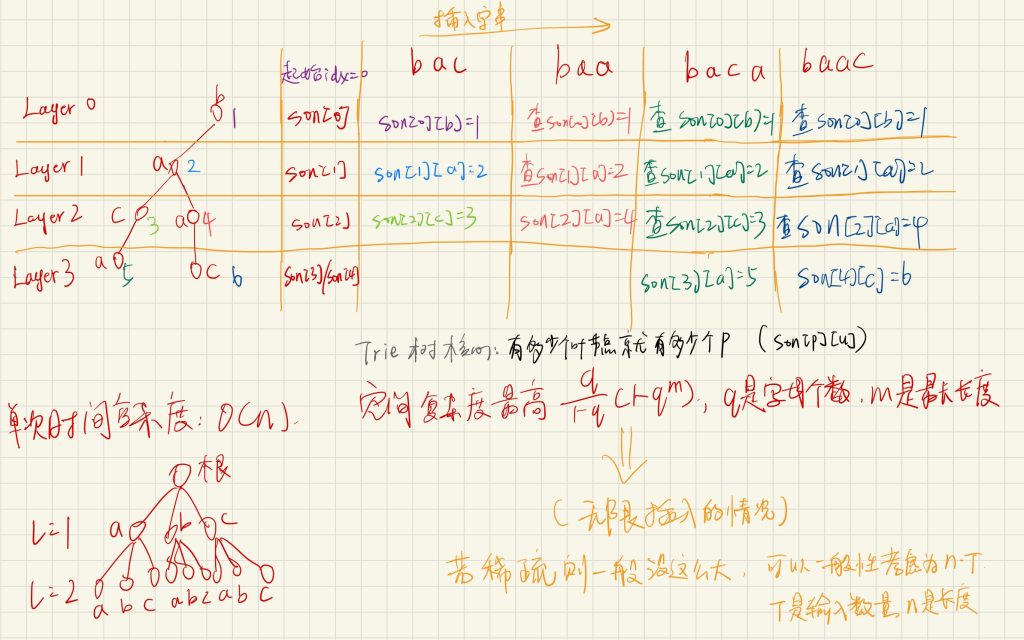 插入字串
起始idx=0 bac baa baca baac
Layer 0 b 1 son[0] son[0][b]=1 查son[0][b]=1 查son[0][b]=1 查son[0][b]=1
Layer 1 a 2 son[1] son[1][a]=2 查son[1][a]=2 查son[1][a]=2 查son[1][a]=2
Layer 2 c 3 a 4 son[2] son[2][c]=3 son[2][a]=4 查son[2][c]=3 查son[2][a]=4
Layer 3 a 5 c 6 son[3]/son[4] son[3][a]=5 son[4][c]=6
Trie树核心:有多少个叶节点就有多少个p (son[p][u])
单次时间复杂度:O(n).
空间复杂度最高 q/1-q (1-q^m), q是字母个数,m是最大长度
根
(无限插入的情况)
L=1 a b c
若稀疏则一般没这么大, 可以一般性考虑为n·T.
L=2 a b c a b c a b c
T是输入数量,n是长度